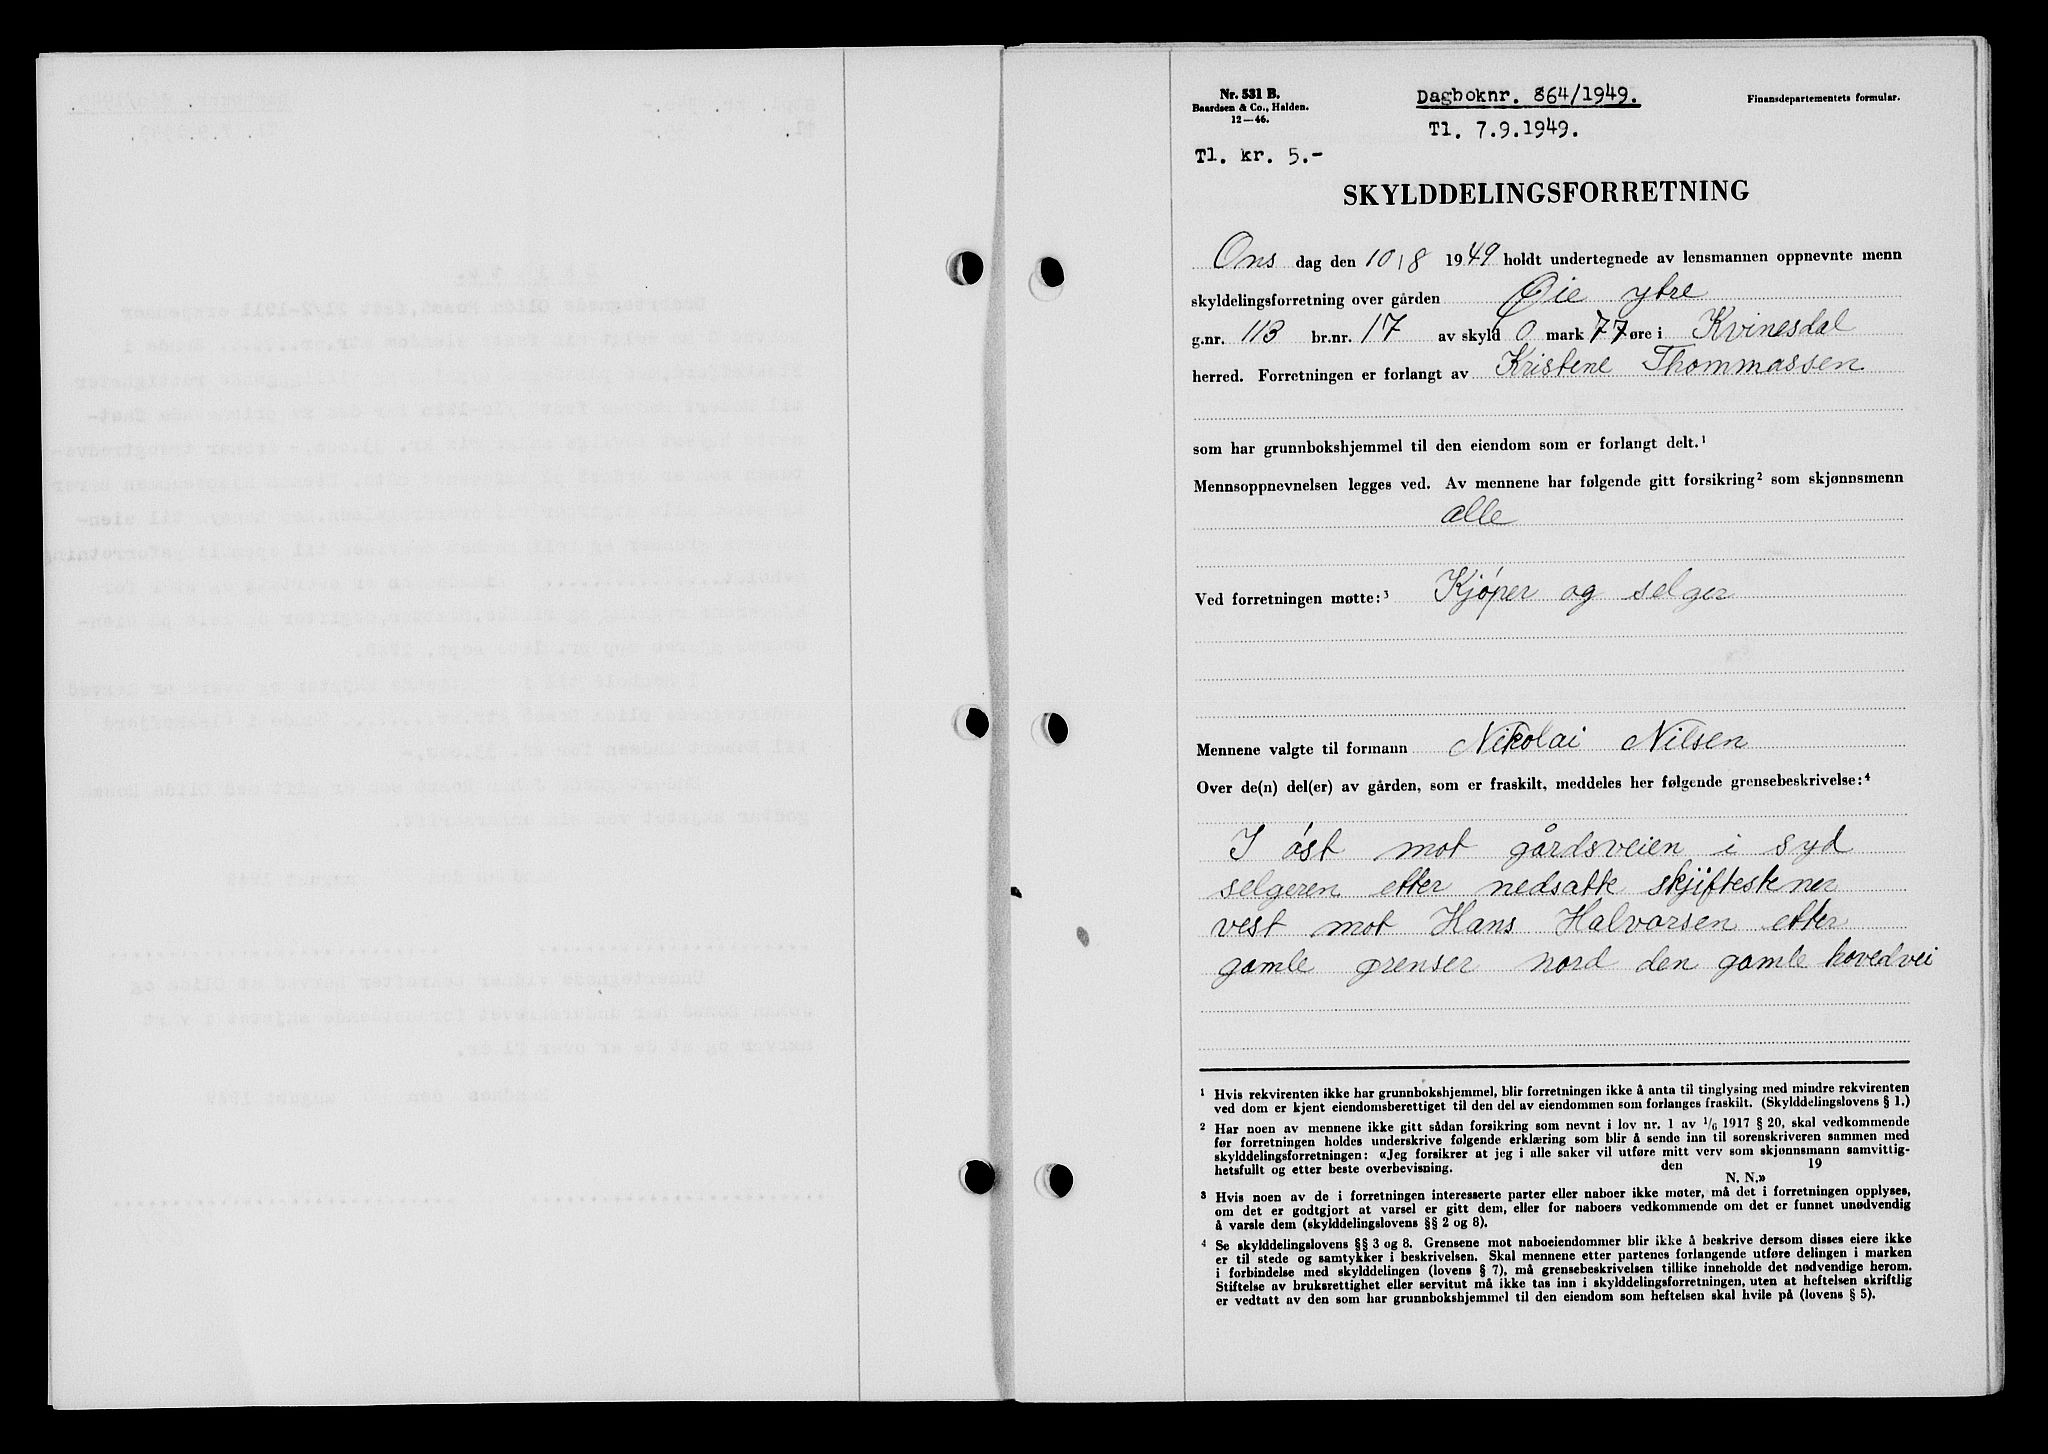 Nr. 531 B.
Baardsen & Co., Halden.
12—46.
Dagboknr. 864/1949.
Tl. 7.9.1949.
Finansdepartementets formular.
Tl. kr. 5.-
SKYLDDELINGSFORRETNING
Ons dag den 10/8 1949 holdt undertegnede av lensmannen oppnevnte menn
skyldelingsforretning over gården Øie ytre
g.nr. 113 br.nr. 17 av skyld 0 mark 77 øre i Kvinesdal
herred. Forretningen er forlangt av Kristene Thommassen
som har grunnbokshjemmel til den eiendom som er forlangt delt.¹
Mennsoppnevnelsen legges ved. Av mennene har følgende gitt forsikring² som skjønnsmenn
alle
Ved forretningen møtte:³ Kjøper og selger
Mennene valgte til formann Nikolai Nilsen
Over de(n) del(er) av gården, som er fraskilt, meddeles her følgende grensebeskrivelse:⁴
I øst mot gårdsveien i syd
selgeren etter nedsatte skjiftestener
vest mot Hans Halvorsen etter
gamle grenser nord den gamle hovedvei
¹ Hvis rekvirenten ikke har grunnbokshjemmel, blir forretningen ikke å anta til tinglysing med mindre rekvirenten
ved dom er kjent eiendomsberettiget til den del av eiendommen som forlanges fraskilt. (Skylddelingslovens § 1.)
² Har noen av mennene ikke gitt sådan forsikring som nevnt i lov nr. 1 av 1/6 1917 § 20, skal vedkommende
før forretningen holdes underskrive følgende erklæring som blir å sende inn til sorenskriveren sammen med
skylddelingsforretningen: «Jeg forsikrer at jeg i alle saker vil utføre mitt verv som skjønnsmann samvittig-
hetsfullt og etter beste overbevisning. den 19
N. N.»
³ Hvis noen av de i forretningen interesserte parter eller naboer ikke møter, må det i forretningen opplyses,
om det er godtgjort at varsel er gitt dem, eller for naboers vedkommende om det er funnet unødvendig
å varsle dem (skylddelingslovens §§ 2 og 8).
⁴ Se skylddelingslovens §§ 3 og 8. Grensene mot naboeiendommer blir ikke å beskrive dersom disses eiere ikke
er til stede og samtykker i beskrivelsen. Skal mennene etter partenes forlangende utføre delingen i marken
i forbindelse med skylddelingen (lovens § 7), må grensebeskrivelsen tillike inneholde det nødvendige herom.
Stiftelse av bruksrettighet eller servitut må ikke tas inn i skylddelingsforretningen, uten at heftelsen skriftlig
er vedtatt av den som har grunnbokshjemmel til den eiendom som heftelsen skal hvile på (lovens § 5).